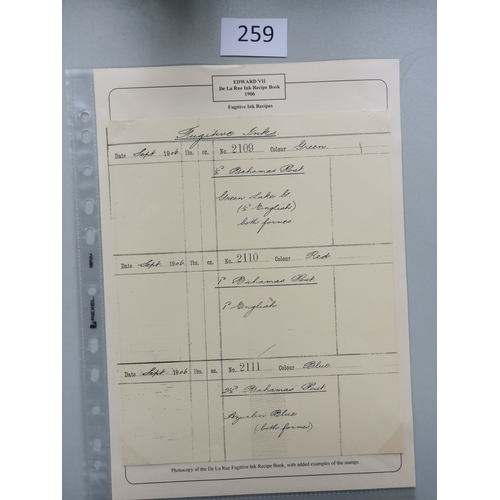 259
EDWARD VII
De La Rue Ink Recipe Book
1906
Fugitive Ink Recipes
Fugitive Inks
Date Sept. 1906 lbs. oz. No. 2109 Colour Green
Bahamas Post
Green Lake G.
(½ English)
both formes
Date Sept. 1906 lbs. oz. No. 2110 Colour Red
1d Bahamas Post
1d English
Date Sept. 1906 lbs. oz. No. 2111 Colour Blue
Bahamas Post
Blue
(both formes)
Photocopy of the De La Rue Fugitive Ink Recipe Book, with added examples of the stamps